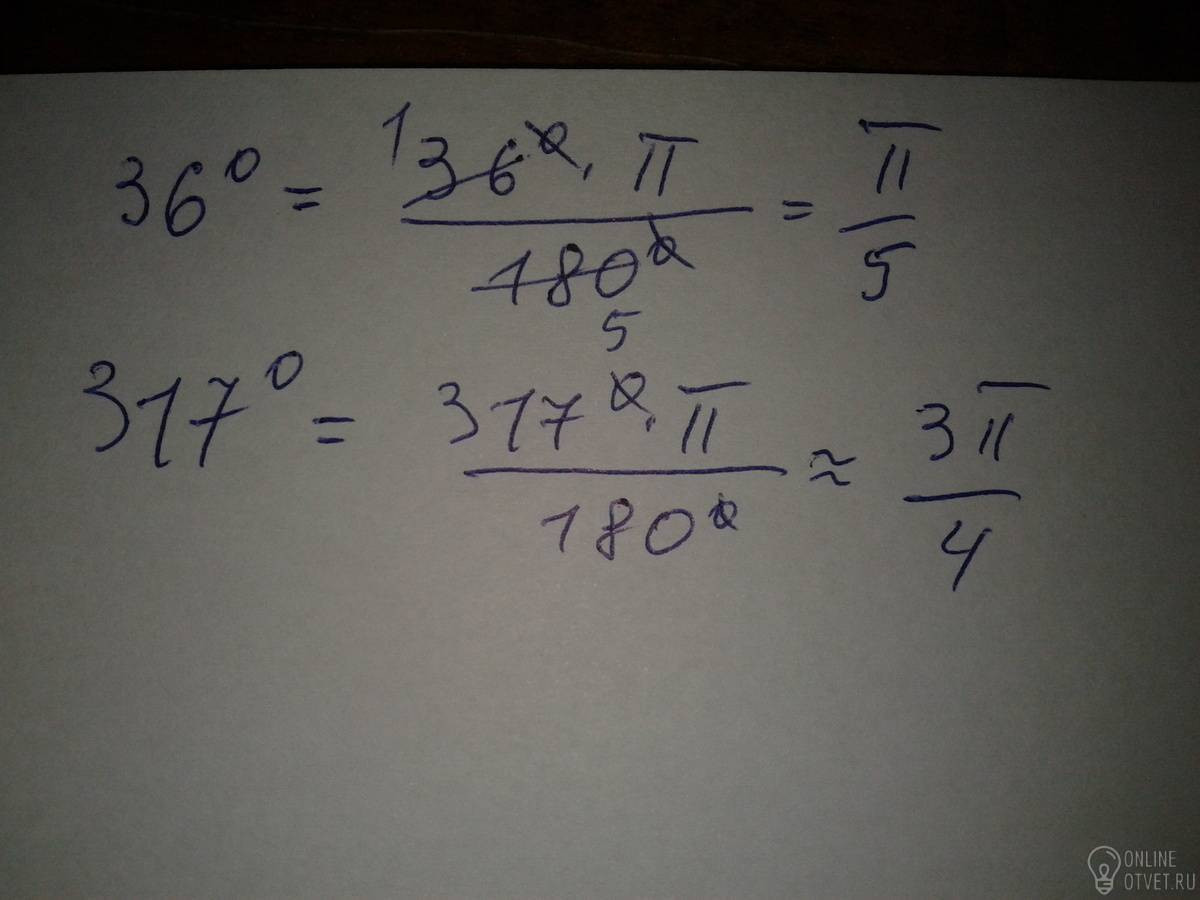 36° = 36° · π / 180° = π / 5
1
5
317° = 317° · π / 180° ≈ 3π / 4
ONLINE
OTVET.RU